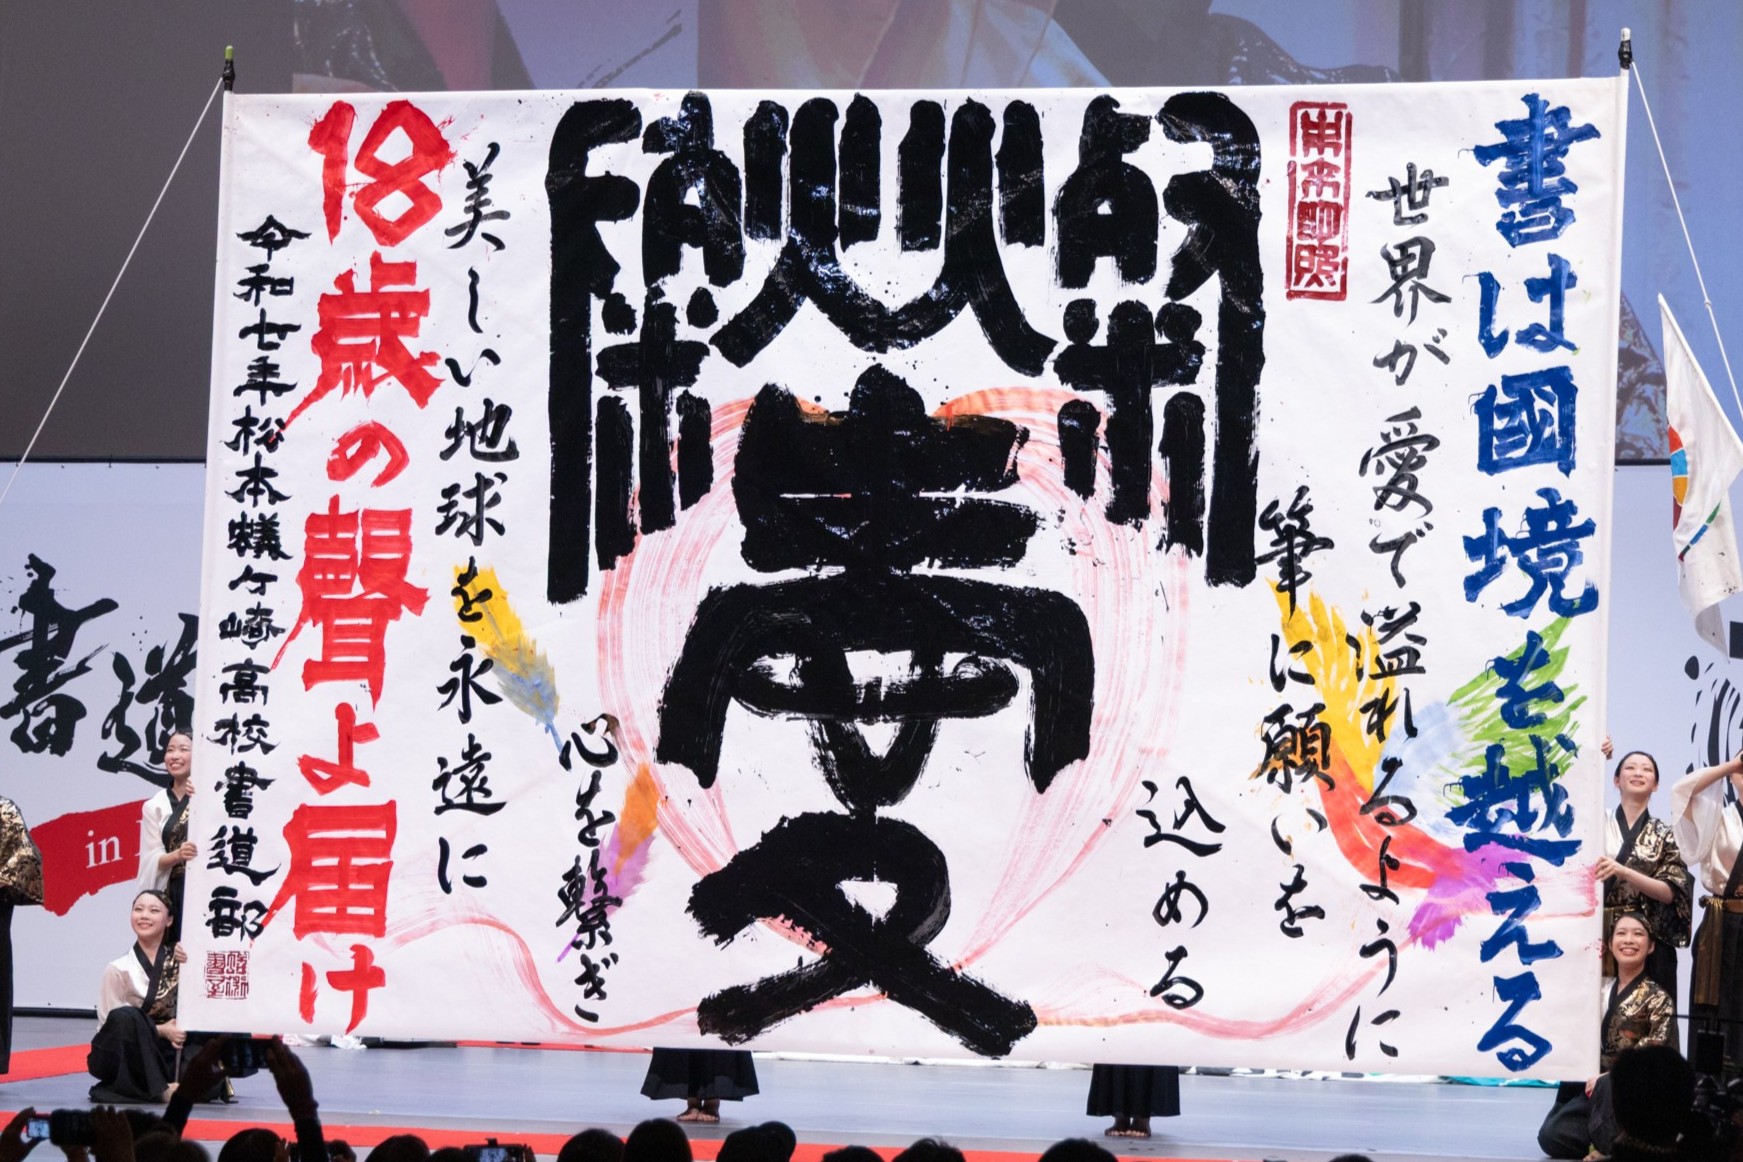 書は國境を越える
世界が愛で溢れるように
筆に願いを
込める
愛
心を繋ぎ
美しい地球を永遠に
18歳の聲よ届け
令和七年松本蟻ケ崎高校書道部
書道
in